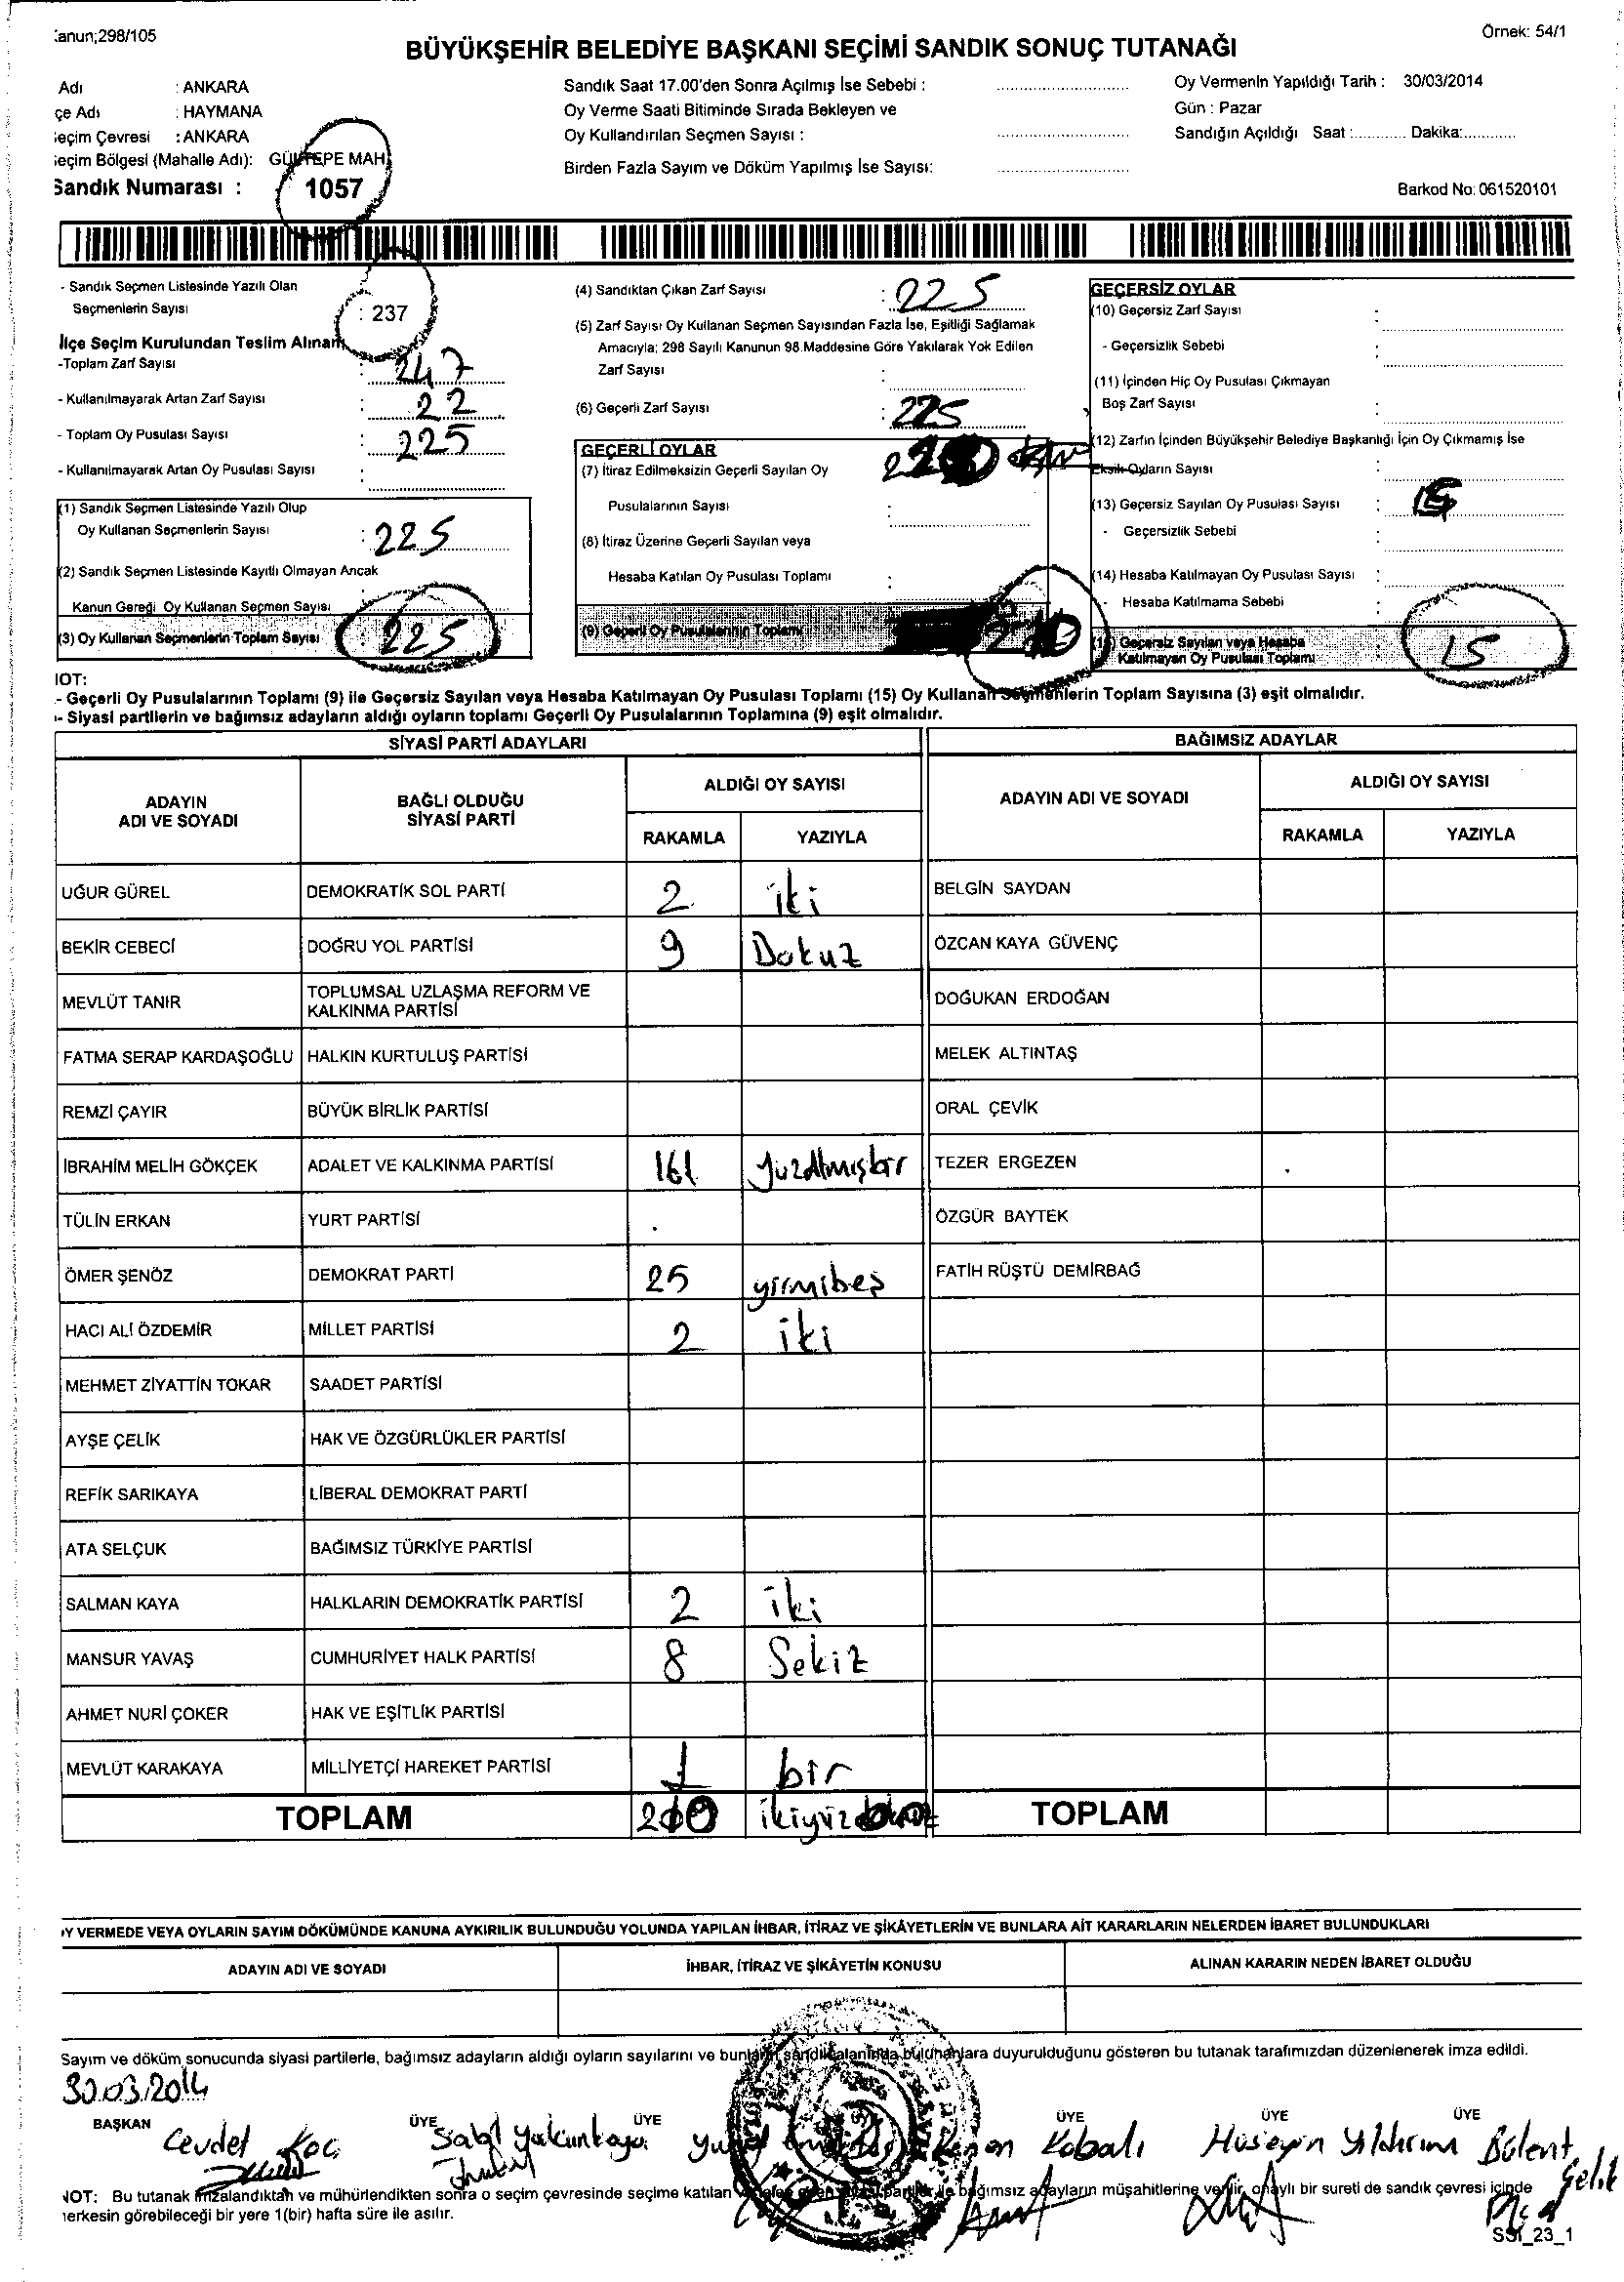 anun;298/105
Örnek: 54/1
BÜYÜKŞEHİR BELEDİYE BAŞKANI SEÇİMİ SANDIK SONUÇ TUTANAĞI
Adı : ANKARA
çe Adı : HAYMANA
eçim Çevresi : ANKARA
eçim Bölgesi (Mahalle Adı): GÜLTEPE MAH
Sandık Numarası : 1057
Sandık Saat 17.00'den Sonra Açılmış İse Sebebi :
Oy Verme Saati Bitiminde Sırada Bekleyen ve
Oy Kullandırılan Seçmen Sayısı :
Birden Fazla Sayım ve Döküm Yapılmış İse Sayısı:
Oy Vermenin Yapıldığı Tarih : 30/03/2014
Gün : Pazar
Sandığın Açıldığı Saat :............ Dakika:............
Barkod No: 061520101
- Sandık Seçmen Listesinde Yazılı Olan
Seçmenlerin Sayısı : 237
İlçe Seçim Kurulundan Teslim Alınan
-Toplam Zarf Sayısı : 247
- Kullanılmayarak Artan Zarf Sayısı : 22
- Toplam Oy Pusulası Sayısı : 225
- Kullanılmayarak Artan Oy Pusulası Sayısı :
(1) Sandık Seçmen Listesinde Yazılı Olup
Oy Kullanan Seçmenlerin Sayısı : 225
(2) Sandık Seçmen Listesinde Kayıtlı Olmayan Ancak
Kanun Gereği Oy Kullanan Seçmen Sayısı
(3) Oy Kullanan Seçmenlerin Toplam Sayısı 225
(4) Sandıktan Çıkan Zarf Sayısı : 225
(5) Zarf Sayısı Oy Kullanan Seçmen Sayısından Fazla İse, Eşitliği Sağlamak
Amacıyla; 298 Sayılı Kanunun 98.Maddesine Göre Yakılarak Yok Edilen
Zarf Sayısı :
(6) Geçerli Zarf Sayısı : 225
GEÇERLİ OYLAR
(7) İtiraz Edilmeksizin Geçerli Sayılan Oy
Pusulalarının Sayısı :
(8) İtiraz Üzerine Geçerli Sayılan veya
Hesaba Katılan Oy Pusulası Toplamı :
(9) Geçerli Oy Pusulalarının Toplamı 210
GEÇERSİZ OYLAR
(10) Geçersiz Zarf Sayısı :
- Geçersizlik Sebebi :
(11) İçinden Hiç Oy Pusulası Çıkmayan
Boş Zarf Sayısı :
(12) Zarfın İçinden Büyükşehir Belediye Başkanlığı İçin Oy Çıkmamış İse
Eksik Oyların Sayısı :
(13) Geçersiz Sayılan Oy Pusulası Sayısı :
- Geçersizlik Sebebi :
(14) Hesaba Katılmayan Oy Pusulası Sayısı :
- Hesaba Katılmama Sebebi :
(15) Geçersiz Sayılan veya Hesaba
Katılmayan Oy Pusulası Toplamı 15
NOT:
- Geçerli Oy Pusulalarının Toplamı (9) ile Geçersiz Sayılan veya Hesaba Katılmayan Oy Pusulası Toplamı (15) Oy Kullanan Seçmenlerin Toplam Sayısına (3) eşit olmalıdır.
- Siyasi partilerin ve bağımsız adayların aldığı oyların toplamı Geçerli Oy Pusulalarının Toplamına (9) eşit olmalıdır.
SİYASİ PARTİ ADAYLARI
BAĞIMSIZ ADAYLAR
ADAYIN ADI VE SOYADI
BAĞLI OLDUĞU SİYASİ PARTİ
ALDIĞI OY SAYISI
RAKAMLA YAZIYLA
ADAYIN ADI VE SOYADI
ALDIĞI OY SAYISI
RAKAMLA YAZIYLA
UĞUR GÜREL DEMOKRATİK SOL PARTİ 2 iki BELGİN SAYDAN
BEKİR CEBECİ DOĞRU YOL PARTİSİ 9 Dokuz ÖZCAN KAYA GÜVENÇ
MEVLÜT TANIR TOPLUMSAL UZLAŞMA REFORM VE KALKINMA PARTİSİ DOĞUKAN ERDOĞAN
FATMA SERAP KARDAŞOĞLU HALKIN KURTULUŞ PARTİSİ MELEK ALTINTAŞ
REMZİ ÇAYIR BÜYÜK BİRLİK PARTİSİ ORAL ÇEVİK
İBRAHİM MELİH GÖKÇEK ADALET VE KALKINMA PARTİSİ 161 yüzAtmışbir TEZER ERGEZEN
TÜLİN ERKAN YURT PARTİSİ ÖZGÜR BAYTEK
ÖMER ŞENÖZ DEMOKRAT PARTİ 25 yirmibeş FATİH RÜŞTÜ DEMİRBAĞ
HACI ALİ ÖZDEMİR MİLLET PARTİSİ 2 iki
MEHMET ZİYATTİN TOKAR SAADET PARTİSİ
AYŞE ÇELİK HAK VE ÖZGÜRLÜKLER PARTİSİ
REFİK SARIKAYA LİBERAL DEMOKRAT PARTİ
ATA SELÇUK BAĞIMSIZ TÜRKİYE PARTİSİ
SALMAN KAYA HALKLARIN DEMOKRATİK PARTİSİ 2 iki
MANSUR YAVAŞ CUMHURİYET HALK PARTİSİ 8 Sekiz
AHMET NURİ ÇOKER HAK VE EŞİTLİK PARTİSİ
MEVLÜT KARAKAYA MİLLİYETÇİ HAREKET PARTİSİ 1 bir
TOPLAM 210 ikiyüz TOPLAM
OY VERMEDE VEYA OYLARIN SAYIM DÖKÜMÜNDE KANUNA AYKIRILIK BULUNDUĞU YOLUNDA YAPILAN İHBAR, İTİRAZ VE ŞİKÂYETLERİN VE BUNLARA AİT KARARLARIN NELERDEN İBARET BULUNDUKLARI
ADAYIN ADI VE SOYADI İHBAR, İTİRAZ VE ŞİKÂYETİN KONUSU ALINAN KARARIN NEDEN İBARET OLDUĞU
Sayım ve döküm sonucunda siyasi partilerle, bağımsız adayların aldığı oyların sayılarını ve bunların sandık alanında bulunanlara duyurulduğunu gösteren bu tutanak tarafımızdan düzenlenerek imza edildi.
30.03.2014
BAŞKAN ÜYE ÜYE ÜYE ÜYE ÜYE
Cevdet Koç Kenan Kobalı Hüseyin Yıldırım Bülent Çelik
NOT: Bu tutanak imzalandıktan ve mühürlendikten sonra o seçim çevresinde seçime katılan bağımsız adayların müşahitlerine verilir, onaylı bir sureti de sandık çevresi içinde
herkesin görebileceği bir yere 1(bir) hafta süre ile asılır.
SSI_23_1